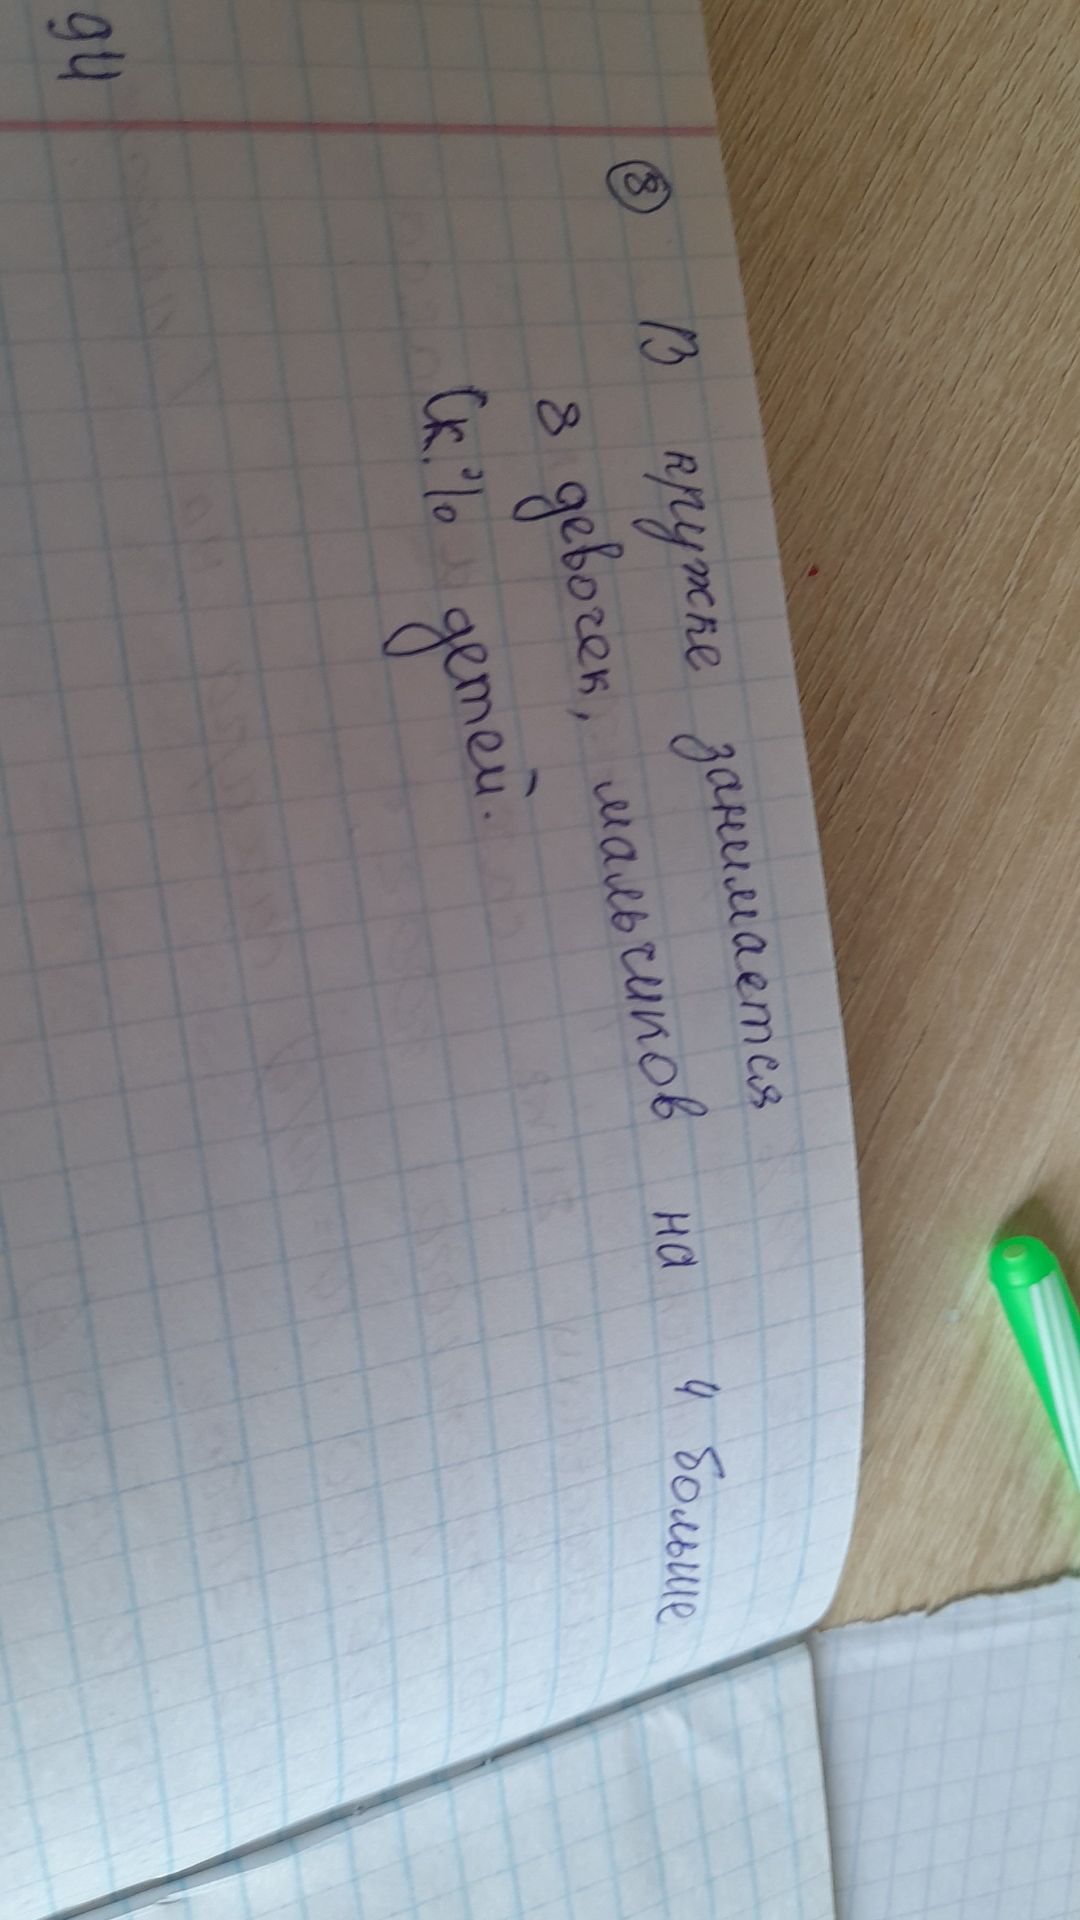 ⑧ В кружке занимается
8 девочек, мальчиков на 4 больше
Ск. % детей.
94